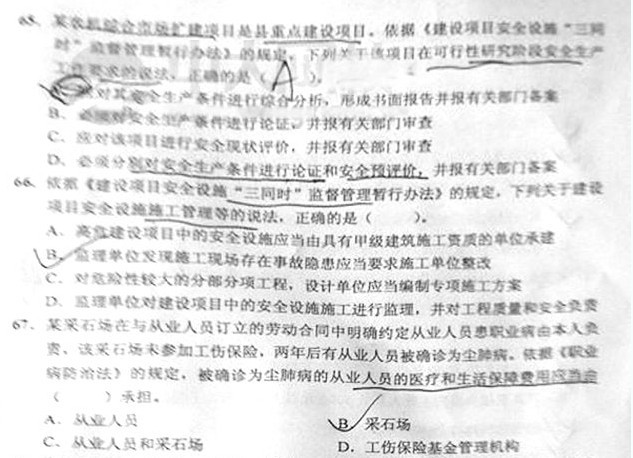 65、某农机综合市场扩建项目是县重点建设项目。依据《建设项目安全设施“三同
时”监督管理暂行办法》的规定，下列关于该项目在可行性研究阶段安全生产
工作要求的说法，正确的是（A）。
对其安全生产条件进行综合分析，形成书面报告并报有关部门备案
B、必须对安全生产条件进行论证，并报有关部门审查
C、应对该项目进行安全现状评价，并报有关部门审查
D、必须分别对安全生产条件进行论证和安全预评价，并报有关部门备案
66、依据《建设项目安全设施“三同时”监督管理暂行办法》的规定，下列关于建设
项目安全设施施工管理等的说法，正确的是（　　）。
A、高危建设项目中的安全设施应当由具有甲级建筑施工资质的单位承建
B、监理单位发现施工现场存在事故隐患应当要求施工单位整改
C、对危险性较大的分部分项工程，设计单位应当编制专项施工方案
D、监理单位对建设项目中的安全设施施工进行监理，并对工程质量和安全负责
67、某采石场在与从业人员订立的劳动合同中明确约定从业人员患职业病由本人负
责，该采石场未参加工伤保险，两年后有从业人员被确诊为尘肺病。依据《职业
病防治法》的规定，被确诊为尘肺病的从业人员的医疗和生活保障费用应当由
（　　）承担。
A．从业人员　　B．采石场
C．从业人员和采石场　　D．工伤保险基金管理机构